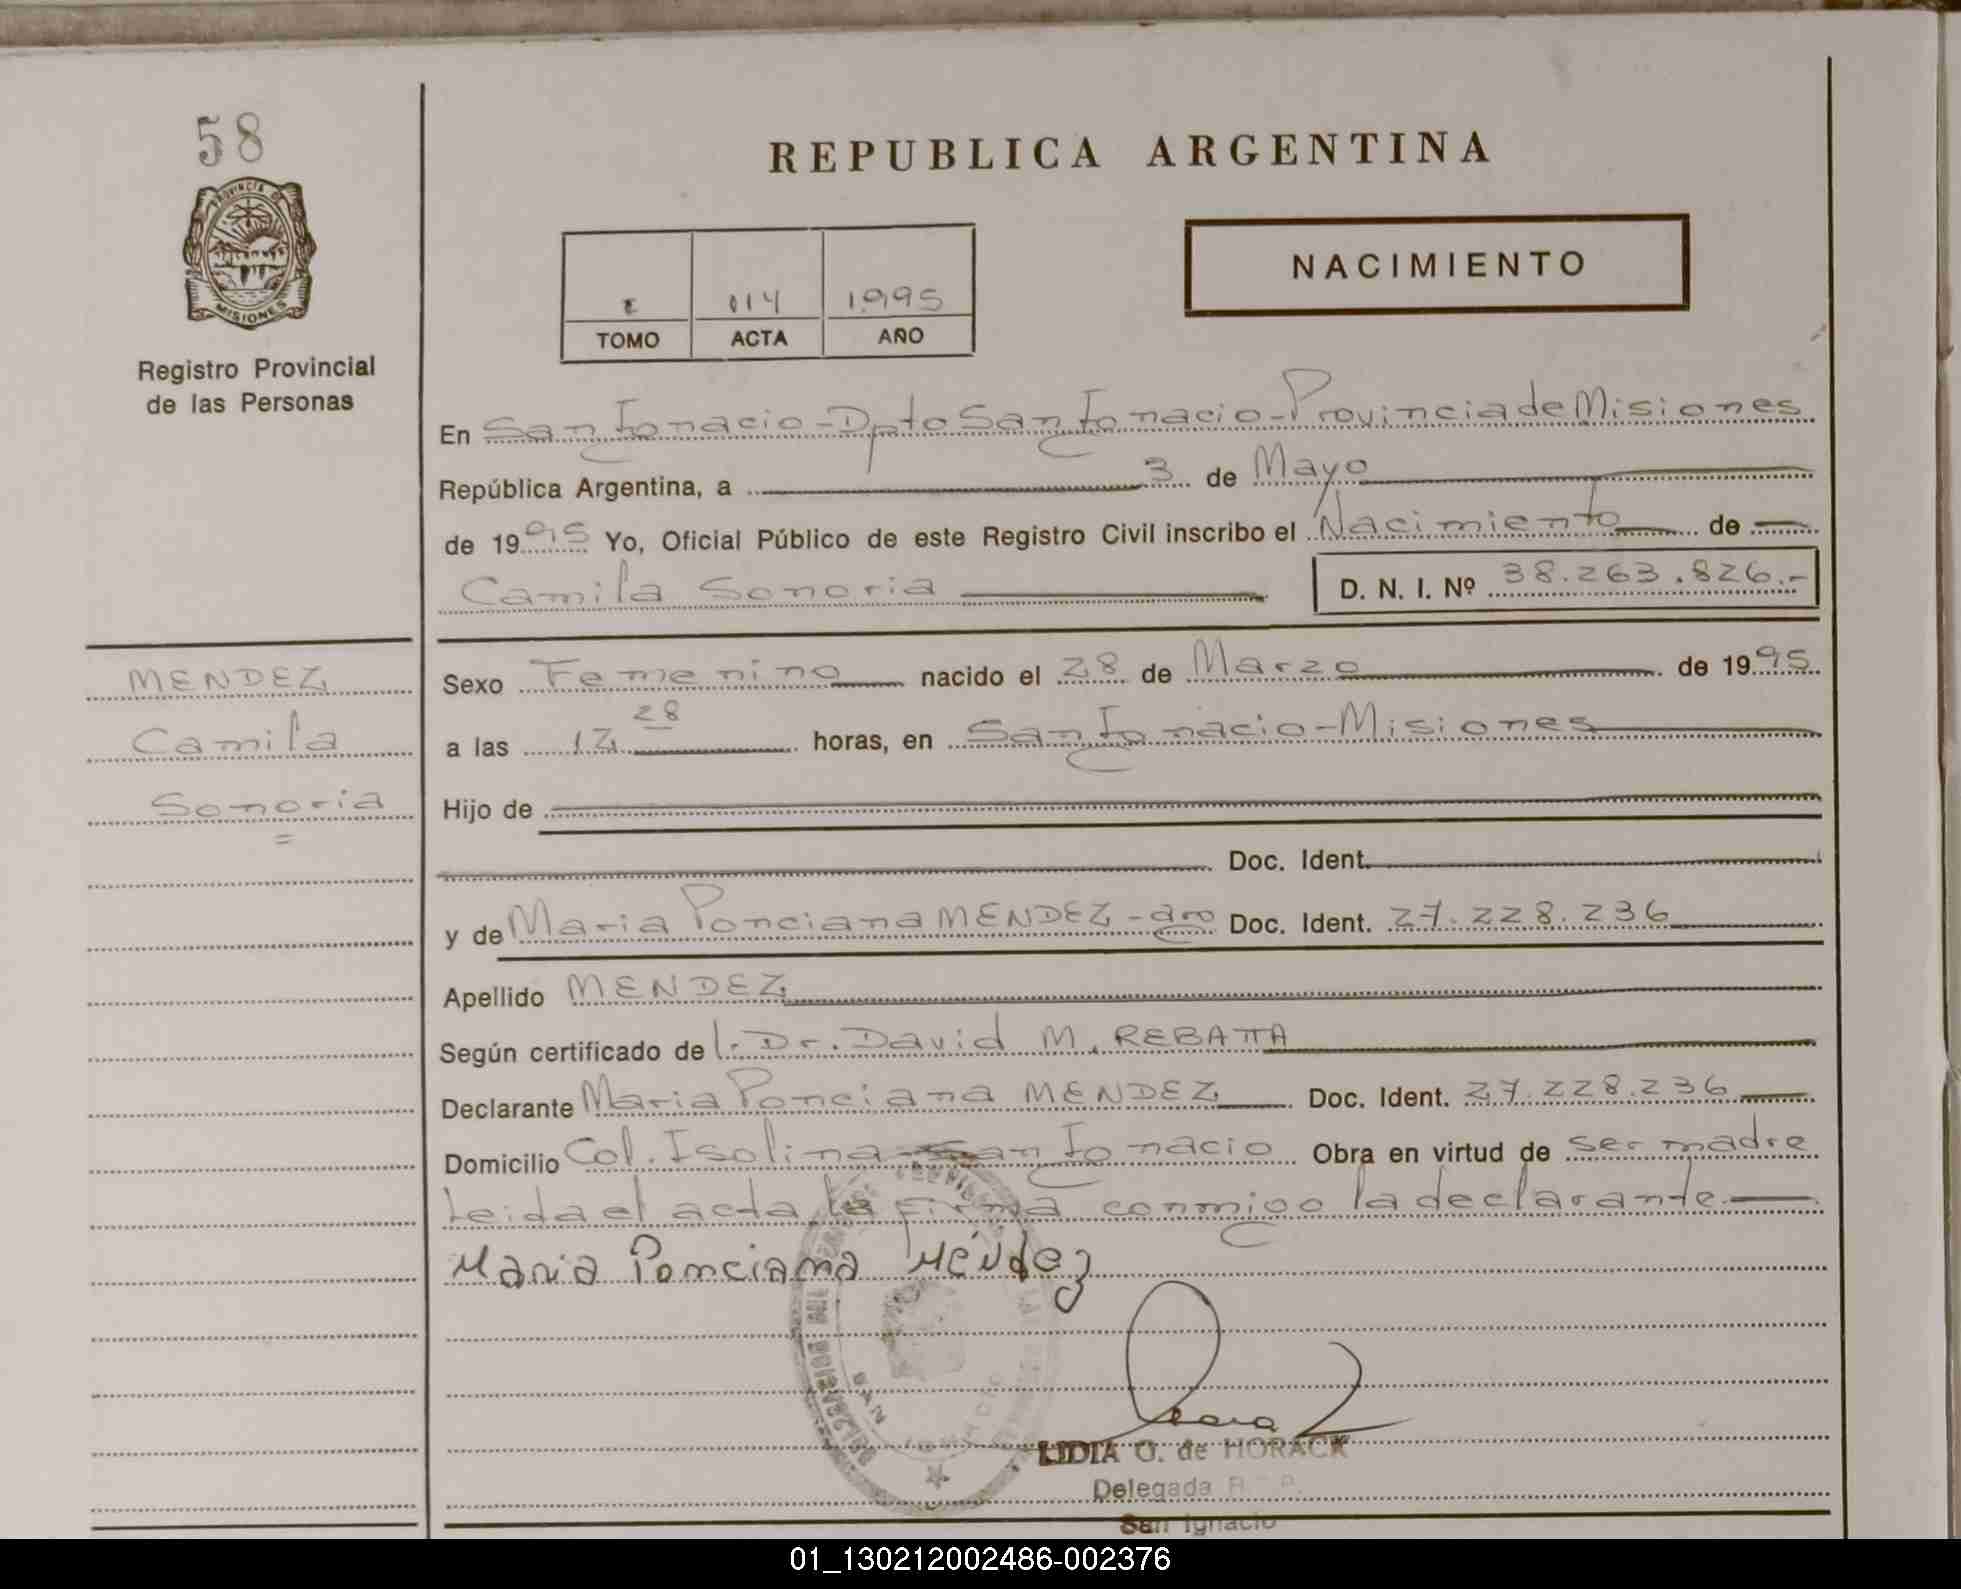 58
PROVINCIA DE
MISIONES
Registro Provincial
de las Personas
REPUBLICA ARGENTINA
NACIMIENTO
014 1995
TOMO ACTA AÑO
En San Ignacio - Dpto San Ignacio - Provincia de Misiones
República Argentina, a 3 de Mayo
de 1995 Yo, Oficial Público de este Registro Civil inscribo el Nacimiento de
Camila Sonoria D. N. I. Nº 38.263.826.-
MENDEZ
Camila
Sonoria
Sexo Femenino nacido el 28 de Marzo de 1995
a las 12 28 horas, en San Ignacio - Misiones
Hijo de
Doc. Ident.
y de Maria Ponciana MENDEZ - arg Doc. Ident. 27.228.236
Apellido MENDEZ
Según certificado de l. Dr. David M. REBATTA
Declarante Maria Ponciana MENDEZ Doc. Ident. 27.228.236
Domicilio Col. Isolina San Ignacio Obra en virtud de ser madre
Leida el acta la firma conmigo la declarante
Maria Ponciana Méndez
SAN
LIDIA O. de HORACK
Delegada R. P.
San Ignacio
01_130212002486-002376